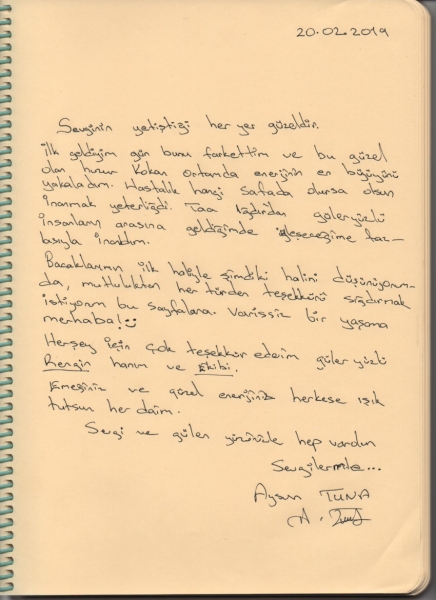 20.02.2019
Sevginin yetiştiği her yer güzeldir.
İlk geldiğim gün bunu farkettim ve bu güzel
olan huzur kokan ortamda enerjinin en büyüğünü
yakaladım. Hastalık hangi safada olursa olsun
inanmak yeterliydi. Taa Iğdır'dan güleryüzlü
insanların arasına geldiğimde iyileşeceğime faz-
lasıyla inandım.
Bacaklarımın ilk haliyle şimdiki halini düşünüyorum
da, mutluluktan her türden teşekkürü sığdırmak
istiyorum bu sayfalara. Varissiz bir yaşama
merhaba!
Herşey için çok teşekkür ederim güler yüzlü
Rengin hanım ve Ekibi.
Emeğiniz ve güzel enerjiniz herkese ışık
tutsun her daim.
Sevgi ve gülen yüzünüzle hep varolun
Sevgilerimle...
Aysun TUNA